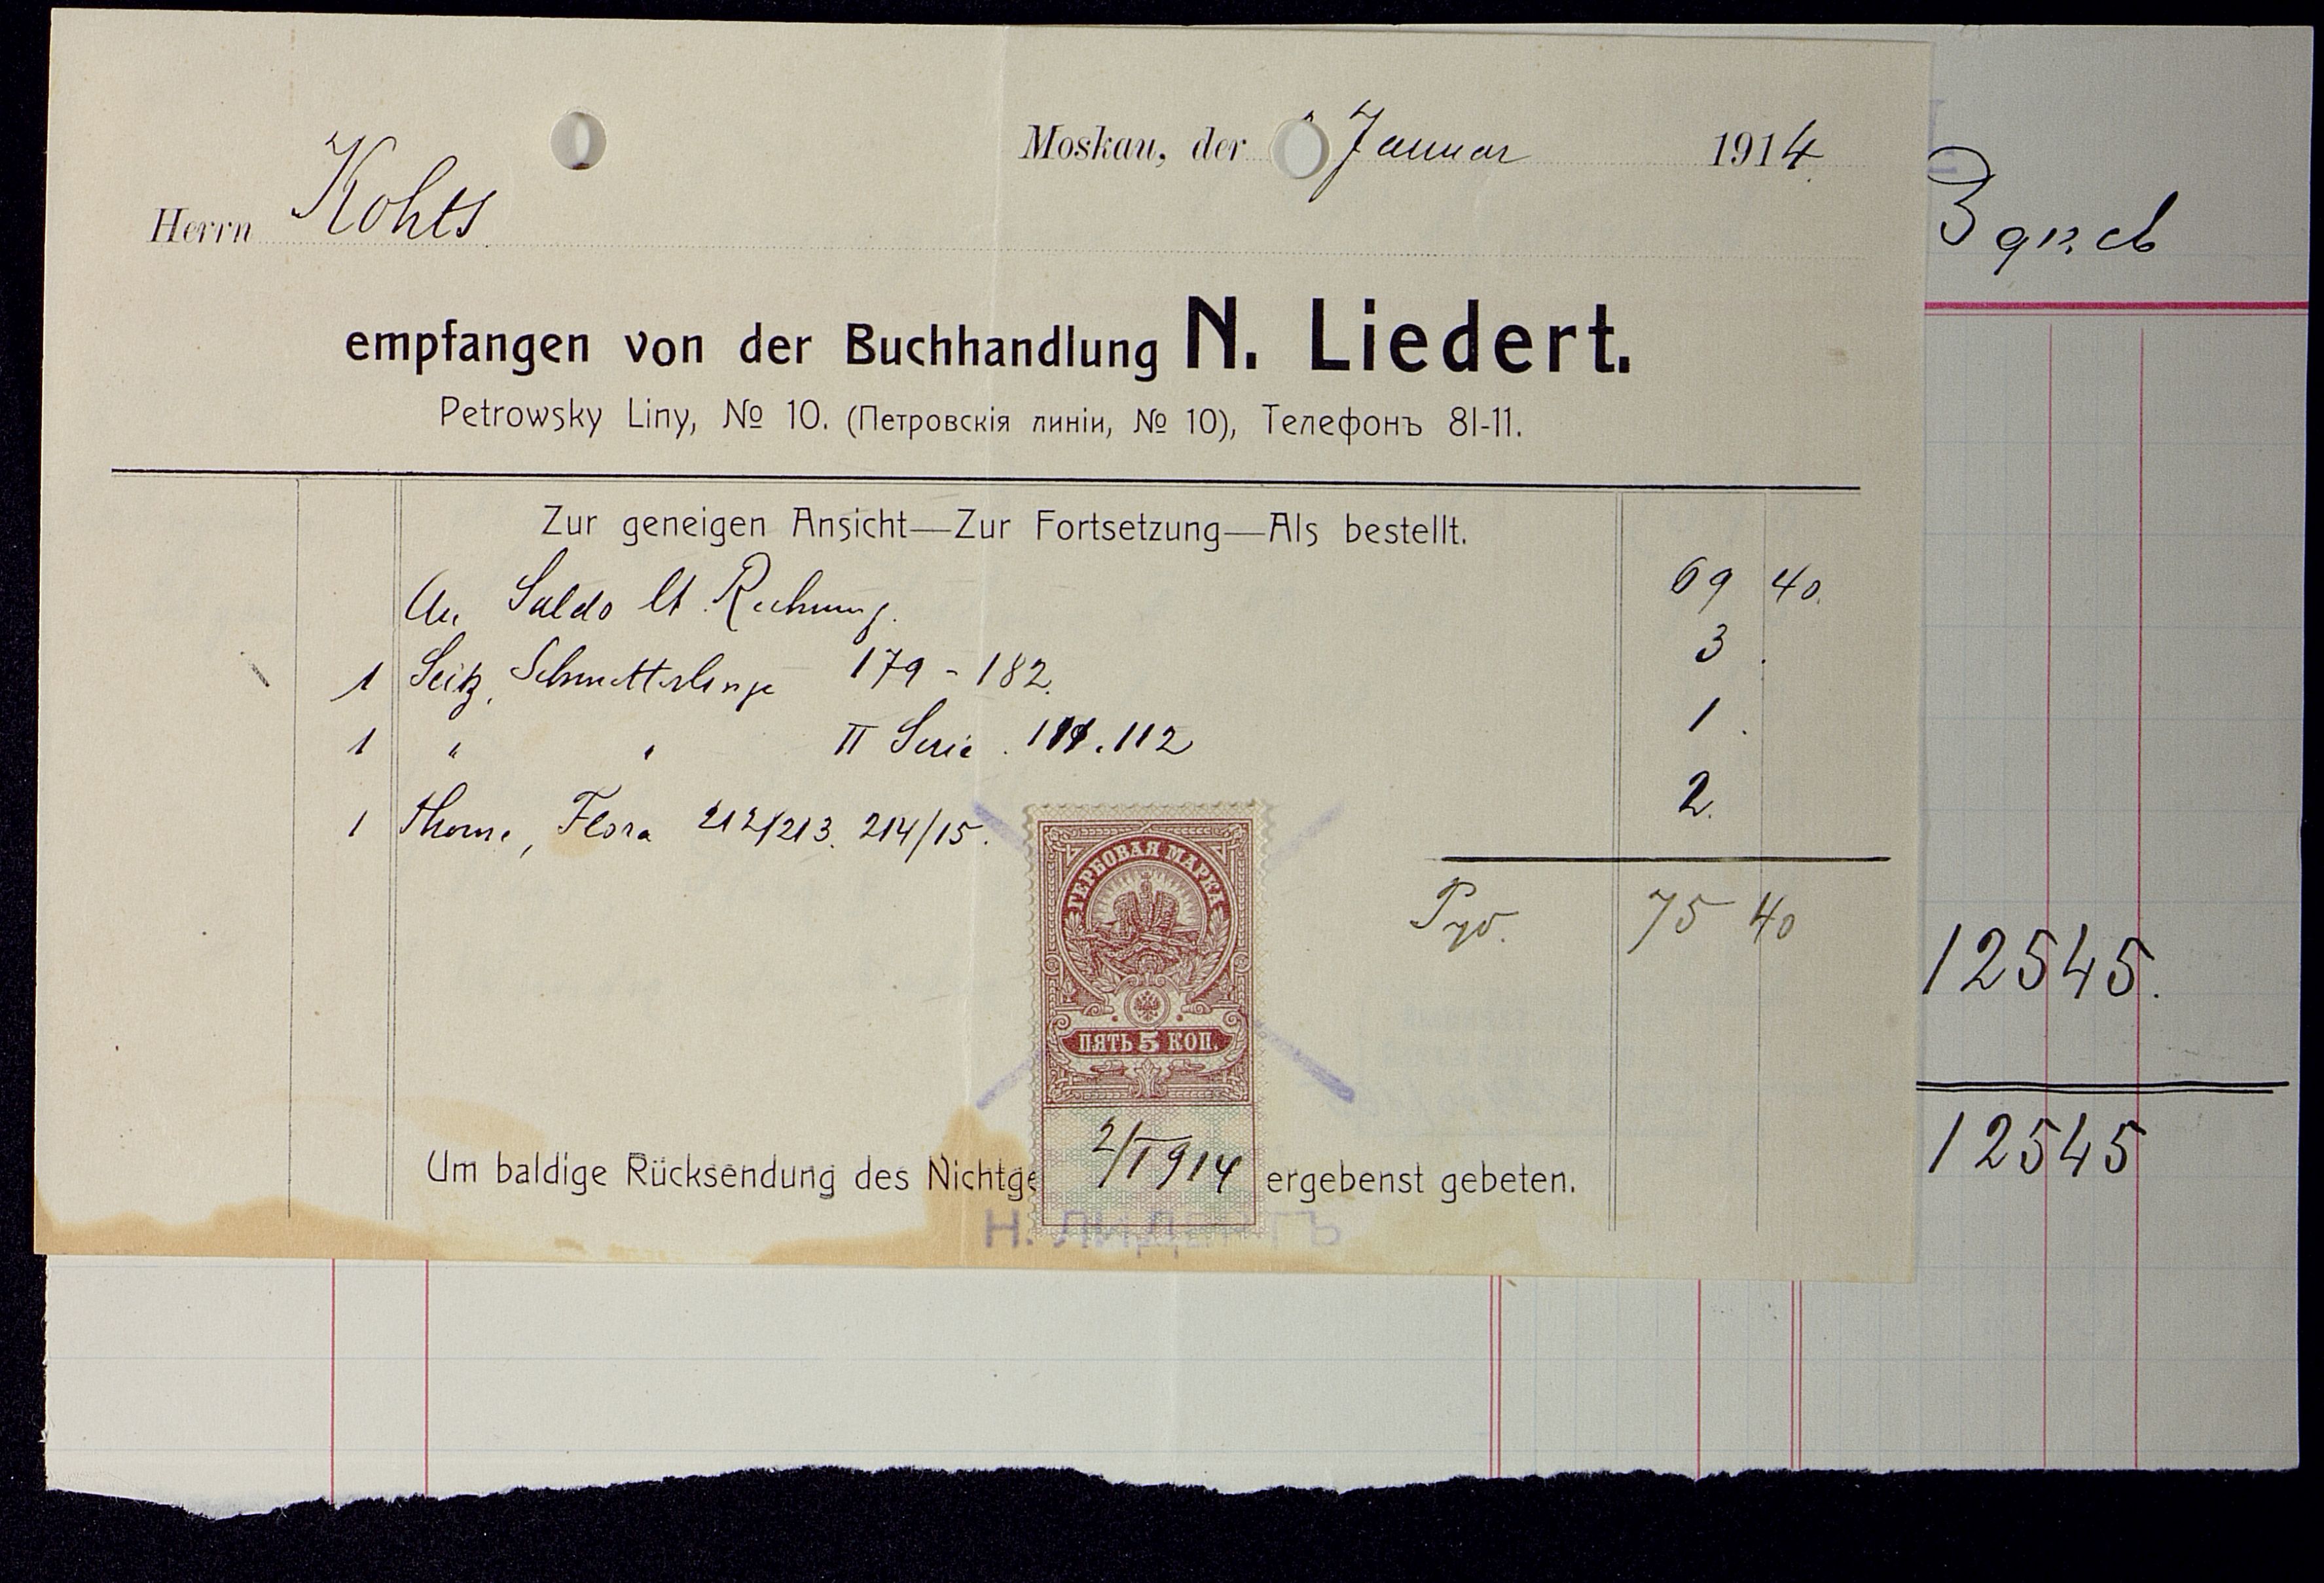 Moskau, der Januar 1914.
Herrn Kohts
empfangen von der Buchhandlung N. Liedert.
Petrowsky Liny, № 10. (Петровскія линіи, № 10), Телефонъ 81-11.
Zur geneigen Ansicht—Zur Fortsetzung—Als bestellt.
An Saldo lt. Rechnung. 69 40.
1 Seitz, Schmetterlinge 179 - 182. 3.
1 " " II Serie. 111.112 1.
1 Thome, Flora 212/213. 214/15. 2.
Руб. 75 40
ГЕРБОВАЯ МАРКА
ПЯТЬ 5 КОП.
2/I 914
Um baldige Rücksendung des Nichtge ergebenst gebeten.
Н. ЛИДЕРТЪ
12545.
12545